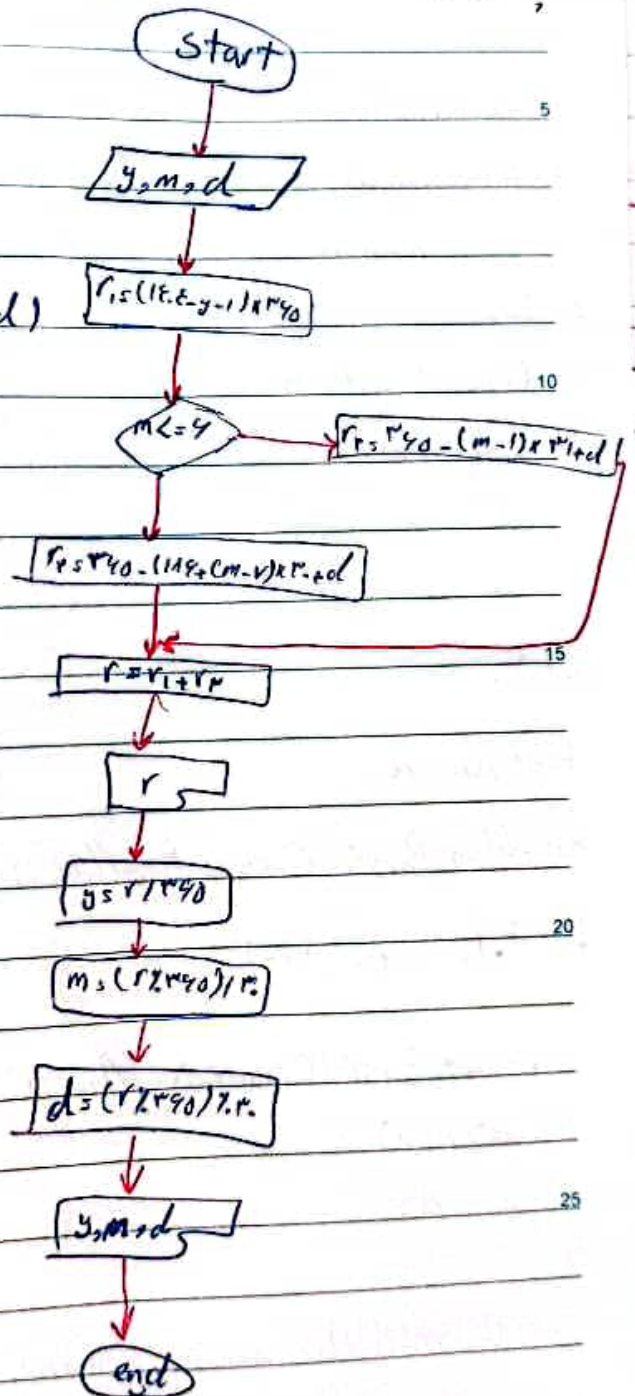 start
5
y, m, d
r₁ = (۱۴۰۴-y-1) × ۳۶۵
d)
10
m <= ۶
r₂ = ۳۶۵ - (m-1) × ۳۱ + d
r₂ = ۳۶۵ - (۱۸۶ + (m-۷) × ۳۰ + d
15
r = r₁ + r₂
r
y = r / ۳۶۵
20
m = (r % ۳۶۵) / ۳۰
d = (r % ۳۶۵) % ۳۰
25
y, m, d
end